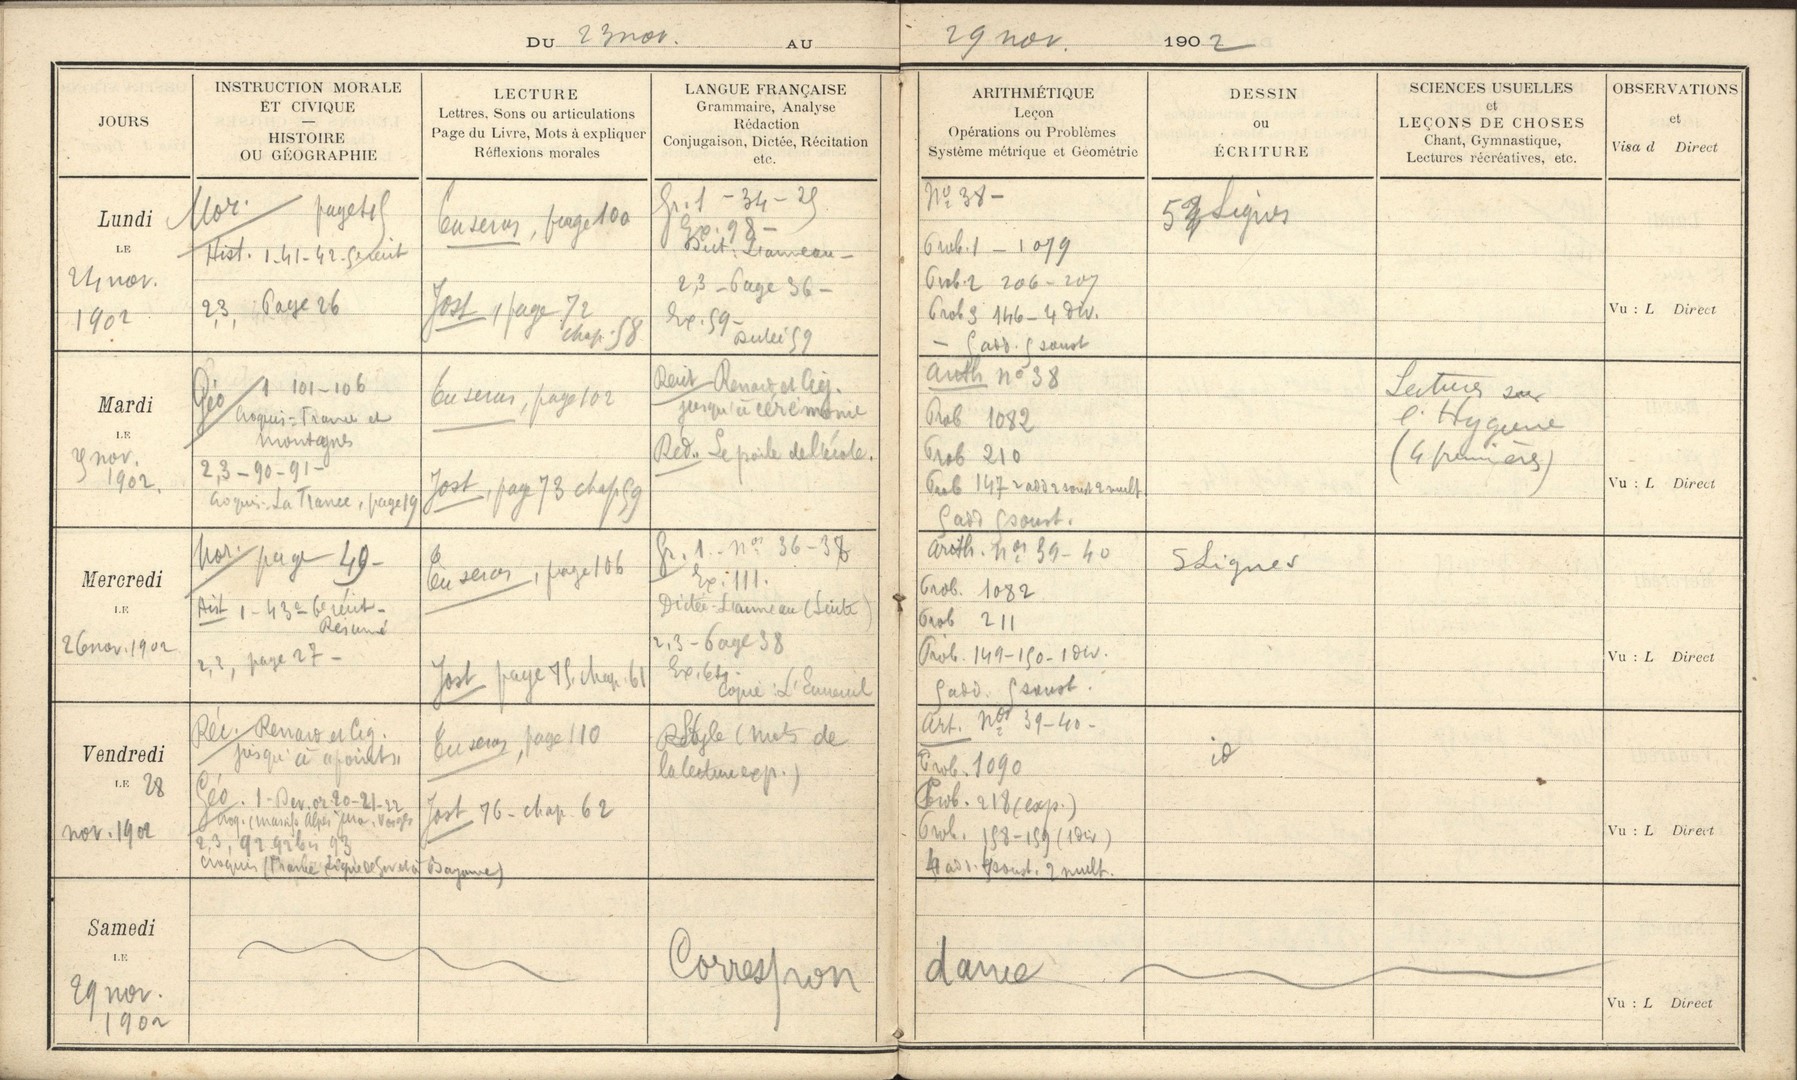 DU 23 nov. AU 29 nov. 1902
JOURS
INSTRUCTION MORALE
ET CIVIQUE
—
HISTOIRE
OU GÉOGRAPHIE
LECTURE
Lettres, Sons ou articulations
Page du Livre, Mots à expliquer
Réflexions morales
LANGUE FRANÇAISE
Grammaire, Analyse
Rédaction
Conjugaison, Dictée, Récitation
etc.
ARITHMÉTIQUE
Leçon
Opérations ou Problèmes
Système métrique et Géométrie
DESSIN
ou
ÉCRITURE
SCIENCES USUELLES
et
LEÇONS DE CHOSES
Chant, Gymnastique,
Lectures récréatives, etc.
OBSERVATIONS
et
Visa d Direct
Lundi
LE
24 nov.
1902
Mor. page 45
Hist. 1-41-42-5e récit
2,3, Page 26
Tu seras, page 100
Jost, page 72
chap. 58
Gr. 1 - 34 - 35
Ex. 98 -
Dict: L'anneau -
2,3 - Page 36 -
Ex. 59 -
Dictée 59
No 38 -
Prob. 1 - 1079
Prob. 2 206 - 207
Prob 3 146 - 4 div.
- 5 add. 5 soust
5 Lignes
Vu : L Direct
Mardi
LE
25 nov.
1902.
Géo 1 101-106
Croquis: France et
montagnes
2,3 - 90 - 91 -
Croquis: La France, page 19
Tu seras, page 102
Jost, page 73 chap 59
Récit Renard et Cig.
jusqu'à cérémonie
Réd. Le poêle de l'école.
Arith no 38
Prob 1082
Prob 210
Prob 147 2 add 2 soust 2 mult
5 add 5 soust.
Lectures sur
l'Hygiène
(4 premières)
Vu : L Direct
Mercredi
LE
26 nov. 1902
Mor. page 49 -
Hist 1 - 43 - 6e récit -
Résumé
2,3, page 27 -
Tu seras, page 106
Jost page 75, chap. 61
Gr. 1 - nos 36 - 38
Ex. 111.
Dictée - L'anneau (Suite)
2,3 - Page 38
Ex. 64
Copie :
Arith. nos 39 - 40
Prob. 1082
Prob 211
Prob. 149-150 - 1 div.
5 add. 5 soust.
5 Lignes
Vu : L Direct
Vendredi
LE 28
nov. 1902
Réc. Renard et Cig.
jusqu'à
Géo. 1 - Dev. 20-21-22
Croq. (massifs Alpes Jura Vosges
2,3, 92 92 bis 93
Croquis (France
Bayonne)
Tu seras, page 110
Jost 76 - chap. 62
Style (mots de
la lecture exp.)
Art. Nos 39-40 -
Prob. 1090
Prob. 218 (exp.)
Prob. 158-159 (1 div)
4 add. 4 soust. 2 mult.
id
Vu : L Direct
Samedi
LE
29 nov.
1902
Correspondance
Vu : L Direct